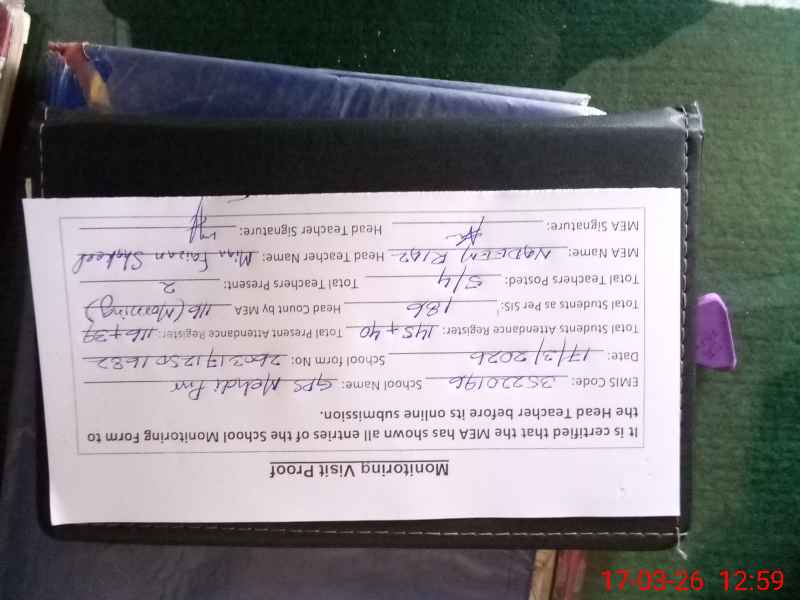 Monitoring Visit Proof
It is certified that the MEA has shown all entries of the School Monitoring Form to
the Head Teacher before its online submission.
EMIS Code: 35220196 School Name: GPS Mehdi Pur
Date: 17/3/2026 School form No: 26031712501682
Total Students Attendance Register: 145 + 40 Total Present Attendance Register: 116 + 39
Total Students as Per SIS: 186 Head Count by MEA 116 (Morning)
Total Teachers Posted: 5/4 Total Teachers Present: 2
MEA Name: NADEEM RIAZ Head Teacher Name: Miss Faizan Shakeel
MEA Signature: Head Teacher Signature:
17-03-26 12:59